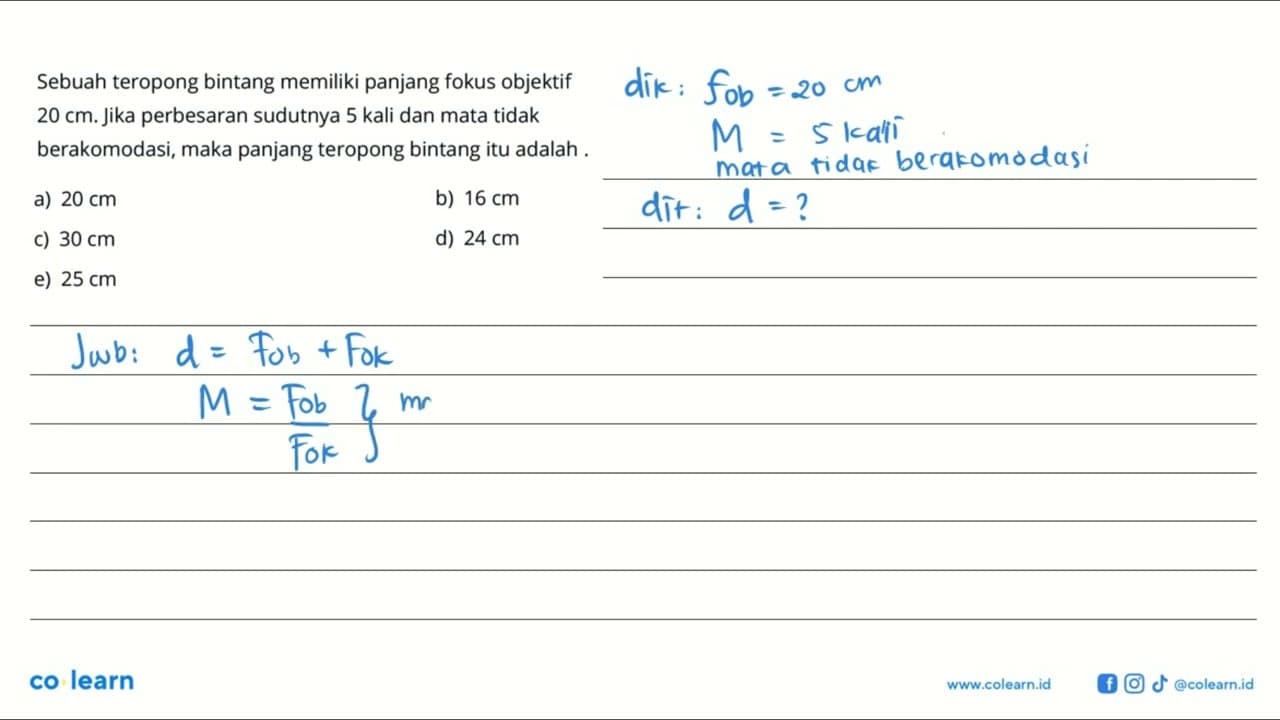 Sebuah teropong bintang memiliki panjang fokus objektif
20 cm. Jika perbesaran sudutnya 5 kali dan mata tidak
berakomodasi, maka panjang teropong bintang itu adalah .
a) 20 cm
b) 16 cm
c) 30 cm
d) 24 cm
e) 25 cm
dik: fob = 20 cm
M = 5 kali
mata tidak berakomodasi
dit: d = ?
Jwb: d = Fob + Fok
M = Fob } mr
Fok
co learn
www.colearn.id
@colearn.id